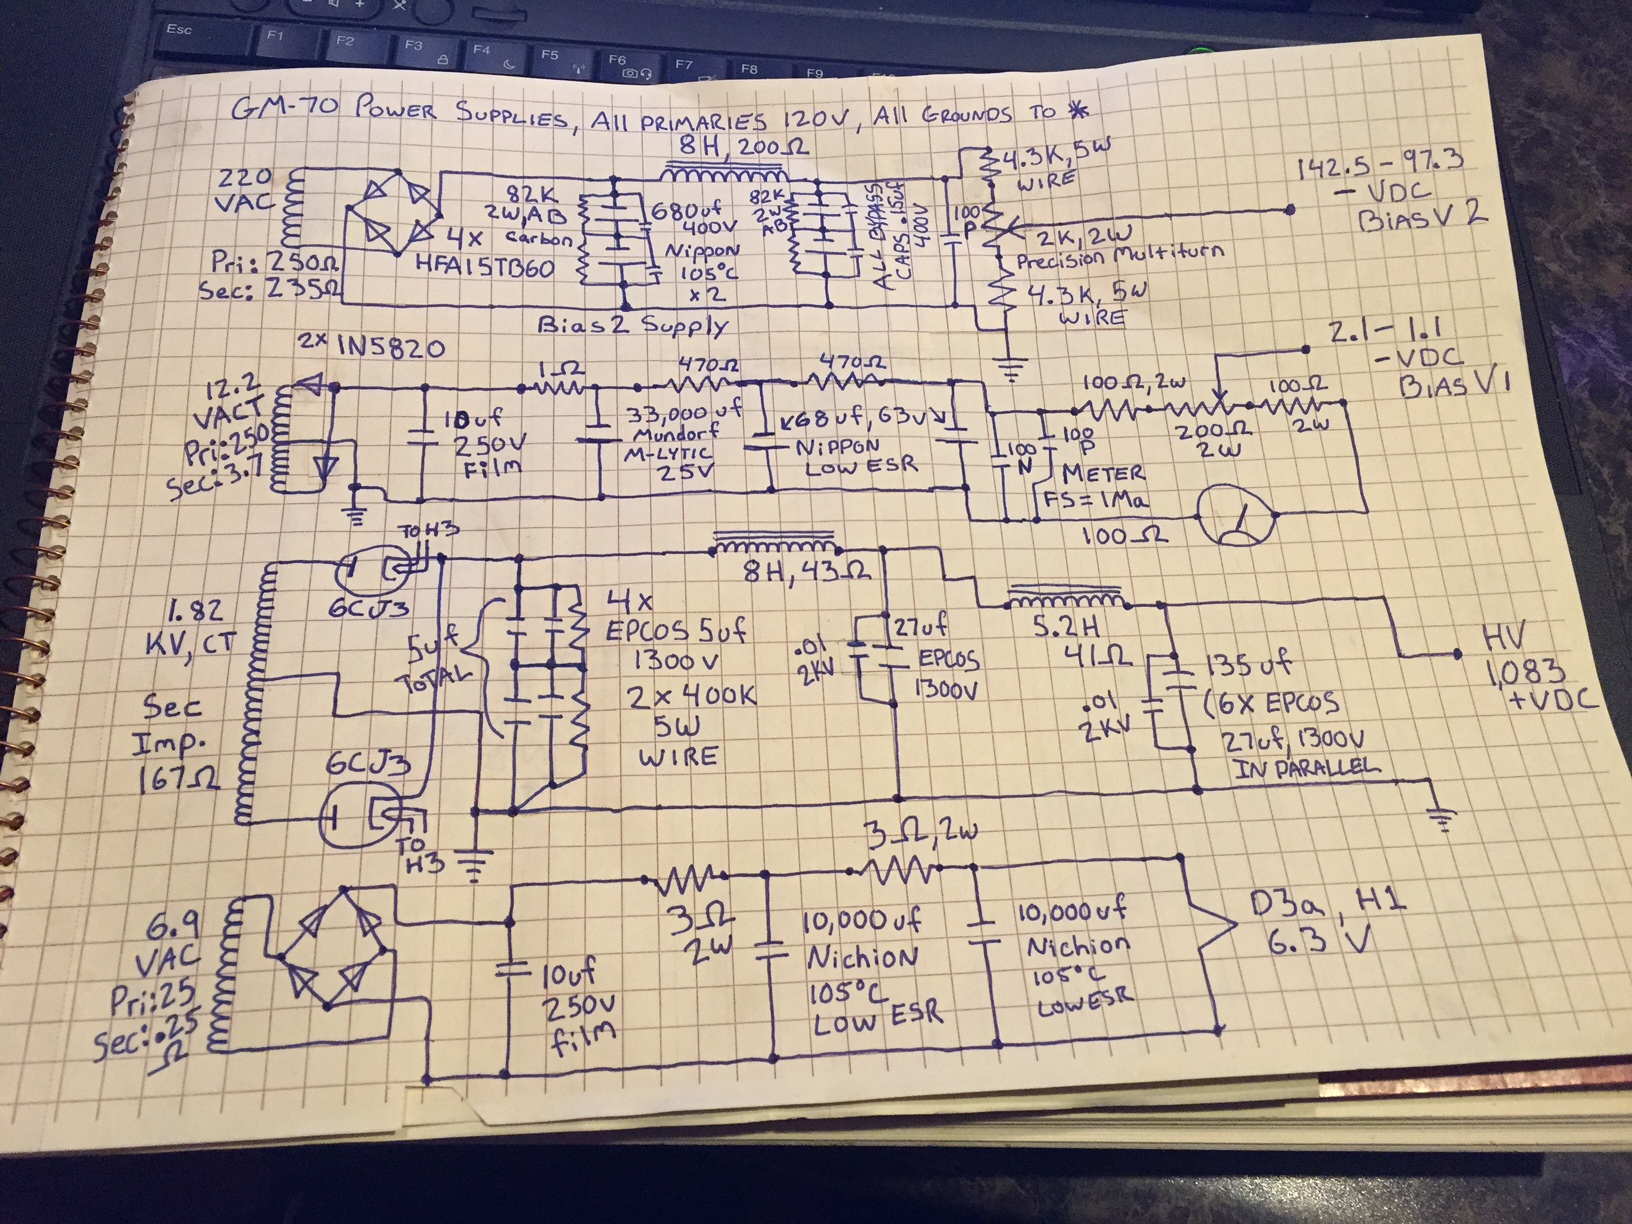 Esc
F1
F2
F3
F4
F5
F6
F7
F8
F9
GM-70 POWER SUPPLIES, All PRIMARIES 120V, All GROUNDS TO *
8H, 200Ω
220
VAC
Pri: 250Ω
Sec: 235Ω
4x
HFA15TB60
82K
2W, AB
Carbon
680uf
400V
Nippon
105°C
x2
82K
2W
AB
ALL BYPASS
CAPS .15uf
400V
100
P
4.3K, 5W
WIRE
2K, 2W
Precision Multiturn
4.3K, 5W
WIRE
142.5-97.3
-VDC
BiASV2
Bias2 Supply
2x 1N5820
12.2
VACT
Pri: 250
Sec: 3.7
10uf
250V
Film
1Ω
33,000uf
Mundorf
M-LYTIC
25V
470Ω
470Ω
68uf, 63V
NiPPON
LOW ESR
100
N
100
P
100Ω, 2W
200Ω
2W
100Ω
2W
METER
FS=1Ma
100Ω
2.1-1.1
-VDC
BiASV1
TO H3
6CJ3
1.82
KV, CT
Sec
Imp.
167Ω
6CJ3
TO
H3
5uf
TOTAL
4x
EPCOS 5uf
1300V
2x400K
5W
WIRE
8H, 43Ω
.01
2KV
27uf
EPCOS
1300V
5.2H
41Ω
.01
2KV
135uf
(6x EPCOS
27uf, 1300V
IN PARALLEL
HV
1,083
+VDC
6.9
VAC
Pri: 25
Sec: .25
Ω
10uf
250V
film
3Ω
2W
10,000uf
Nichion
105°C
LOW ESR
3Ω, 2W
10,000uf
Nichion
105°C
LOWESR
D3a, H1
6.3 V